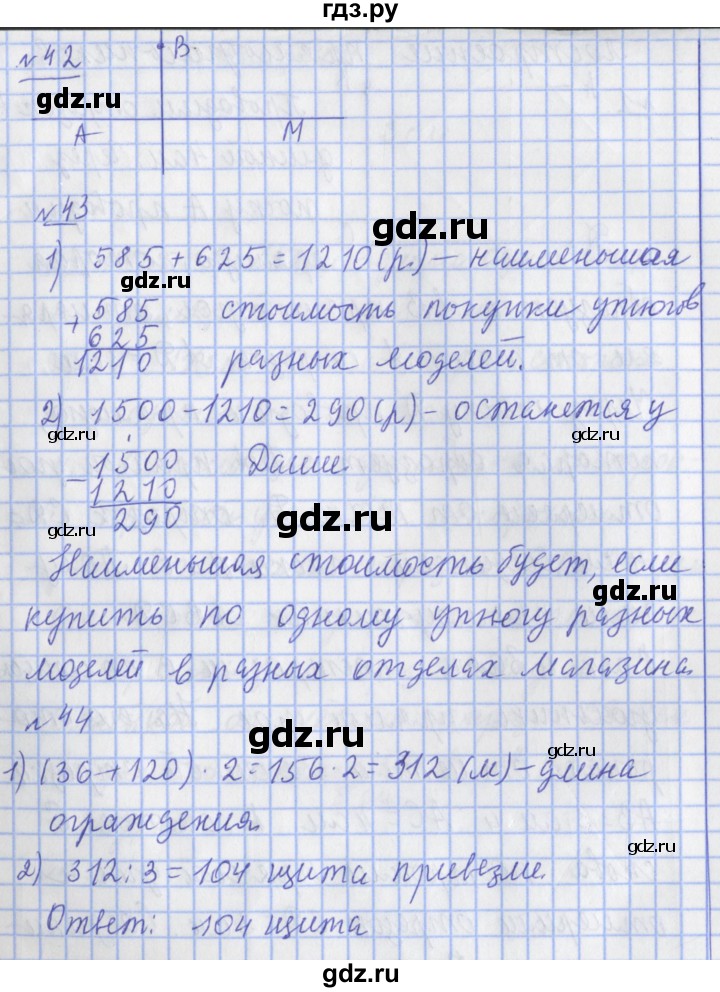 гдз.ру
№42
В.
gdz.ru
А М
№43
gdz.ru
1) 585 + 625 = 1210 (р.) – наименьшая
gdz.ru
+ 585 стоимость покупки утюгов
625
1210 разных моделей.
gdz.ru
2) 1500 – 1210 = 290 (р) – останется у
gdz.ru gdz.ru
– 1500 Даши.
1210
290
gdz.ru gdz.ru
Наименьшая стоимость будет, если
gdz.ru
купить по одному утюгу разных
моделей в разных отделах магазина.
№44
gdz.ru
gdz.ru
1) (36 + 120) · 2 = 156 · 2 = 312 (м) – длина
ограждения.
gdz.ru
2) 312 : 3 = 104 щита привезли.
Ответ: 104 щита
gdz.ru
gdz.ru